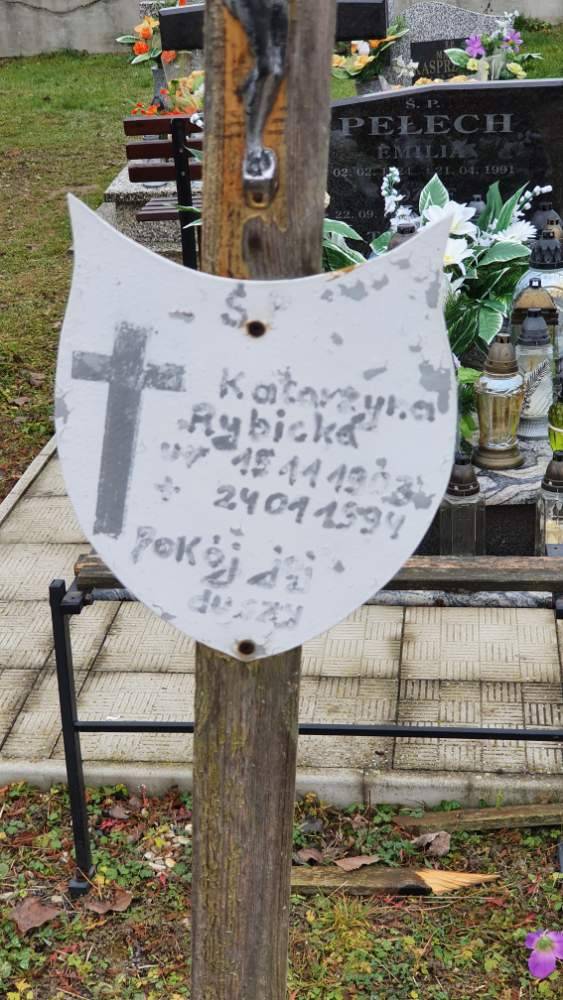 Ś.P.
PEŁECH
EMILIA
21.04.1991
Ś
Katarzyna
Rybicka
ur 15 11 1903
+ 24 01 1994
Pokój jej
duszy